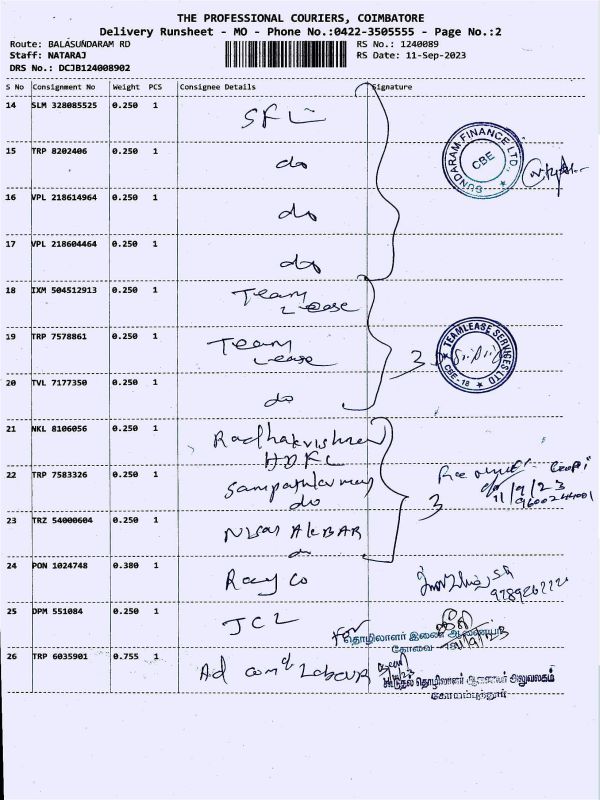 THE PROFESSIONAL COURIERS, COIMBATORE
Delivery Runsheet - MO - Phone No.:0422-3505555 - Page No.:2
Route: BALASUNDARAM RD
RS No.: 1240089
Staff: NATARAJ
RS Date: 11-Sep-2023
DRS No.: DCJB124008902
S No Consignment No Weight PCS Consignee Details Signature
14 SLM 328085525 0.250 1 SFL
SUNDARAM FINANCE LTD. CBE
15 TRP 8202406 0.250 1 do
16 VPL 218614964 0.250 1 do
17 VPL 218604464 0.250 1 do
18 IXM 504512913 0.250 1 Team Lease
19 TRP 7578861 0.250 1 Team Lease
3
TEAMLEASE SERVICES LTD CBE-18
20 TVL 7177350 0.250 1 do
21 NKL 8106056 0.250 1 Radhakrishnan
HDFC
22 TRP 7583326 0.250 1
do
11/9/23
9600244001
3
23 TRZ 54000604 0.250 1 AKBAR
24 PON 1024748 0.380 1 Ray Co
25 DPM 551084 0.250 1 JCL
for
தொழிலாளர் இணை ஆணையர்
கோவை
26 TRP 6035901 0.755 1 Ad Labour
கூடுதல் தொழிலாளர் ஆணையர் அலுவலகம்
கோயம்புத்தூர்